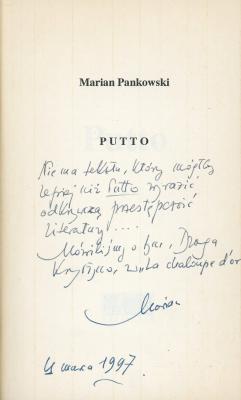 Marian Pankowski
PUTTO
Nie ma tekstu, który mógłby
lepiej niż Putto wyrazić
odkrywczą przestępczość
literatury ....
Mówiliśmy o tym, Droga
Krystyno, w "la chaloupe d'or"
Marian
marca 1997